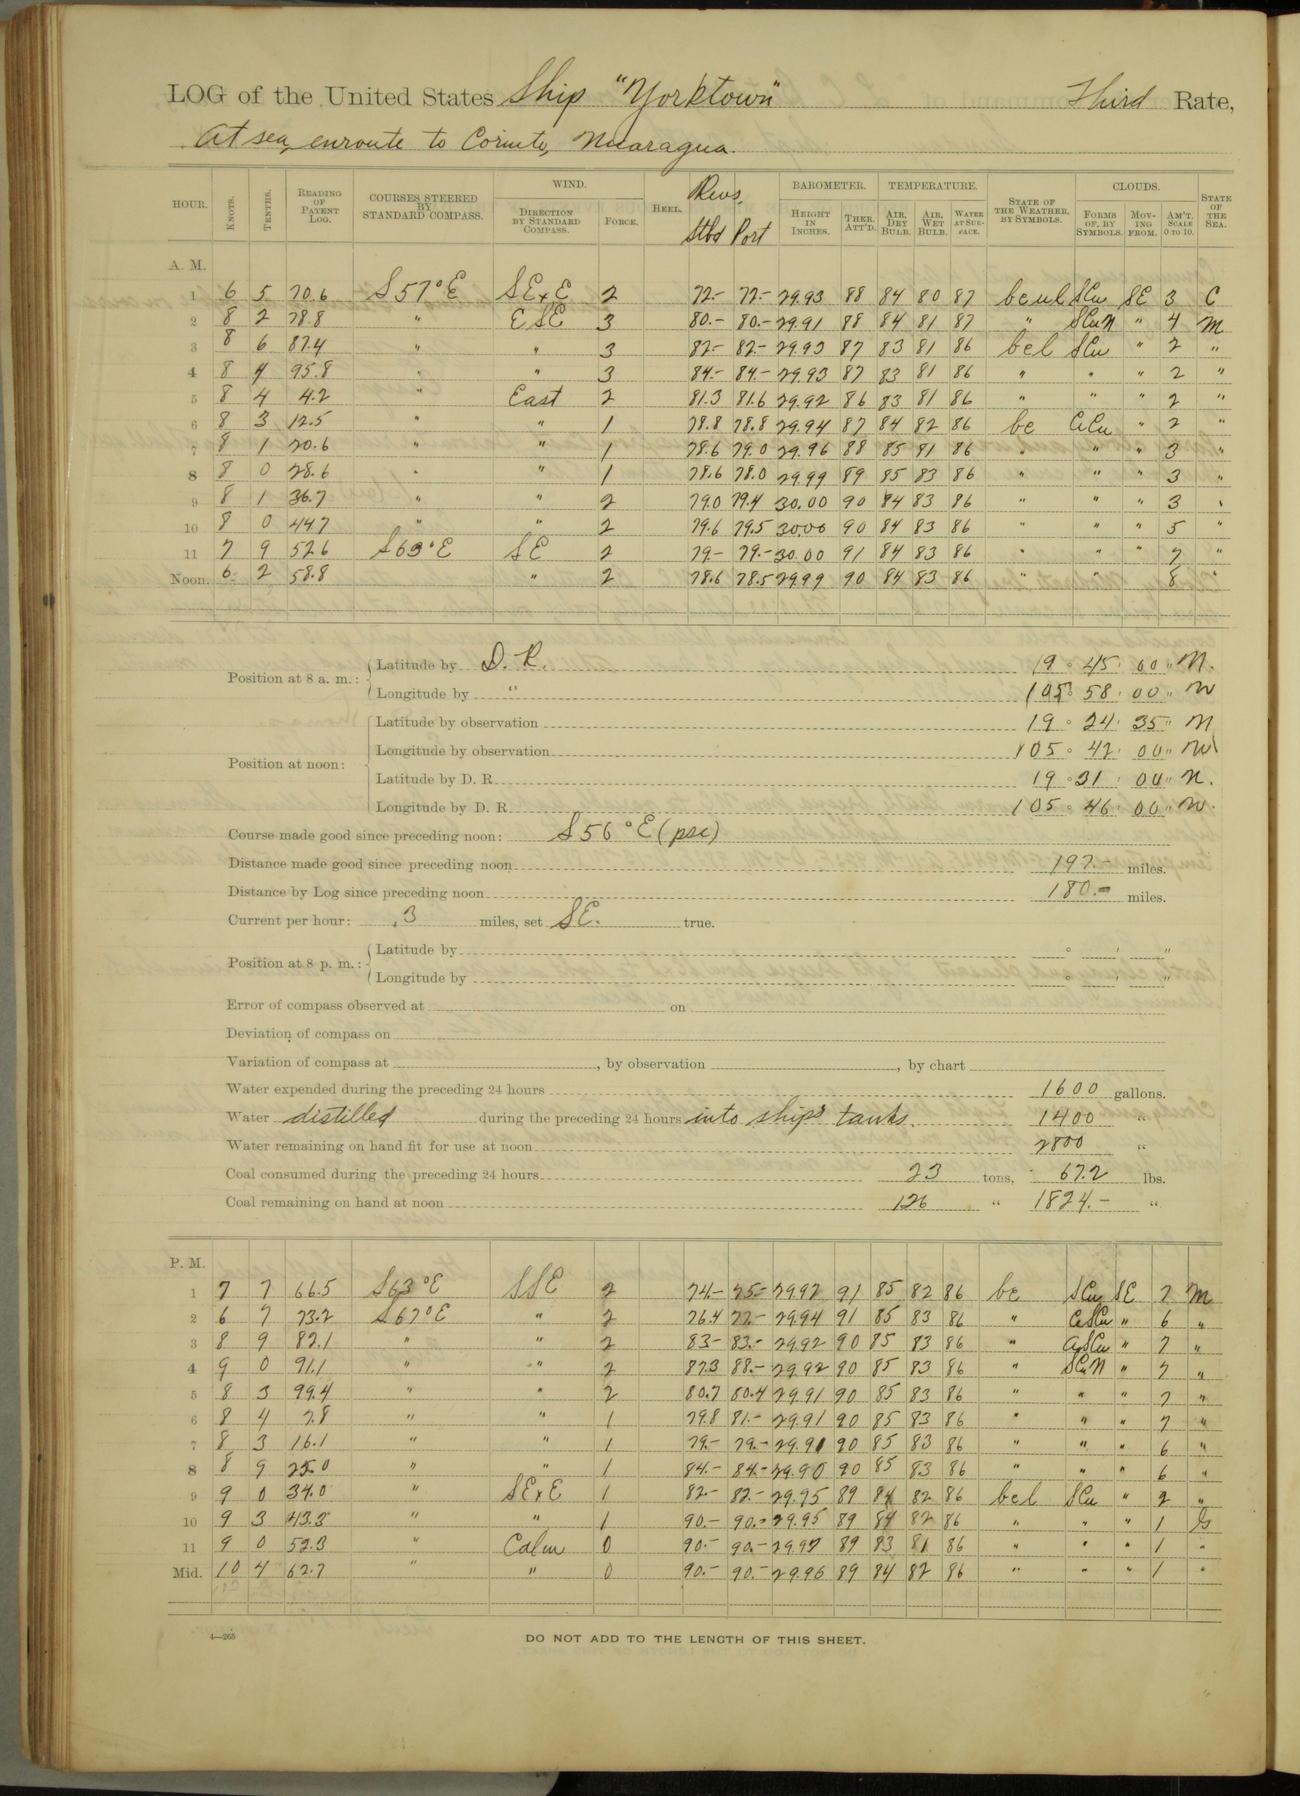 LOG of the United States Ship "Yorktown" Third Rate,
At sea, enroute to Corinto, Nicaragua.
HOUR. KNOTS. TENTHS. READING OF PATENT LOG. COURSES STEERED BY STANDARD COMPASS. WIND. DIRECTION BY STANDARD COMPASS. FORCE. HEEL. Revs. Stbd Port BAROMETER. HEIGHT IN INCHES. THER. ATT'D. TEMPERATURE. AIR, DRY BULB. AIR, WET BULB. WATER AT SURFACE. STATE OF THE WEATHER, BY SYMBOLS. CLOUDS. FORMS OF, BY SYMBOLS. MOVING FROM. AM'T. SCALE 0 TO 10. STATE OF THE SEA.
A. M.
1 6 5 70.6 S 57° E SExE 2 72.- 72.- 29.93 88 84 80 87 bcul SCu SE 3 C
2 8 2 78.8 " ESE 3 80.- 80.- 29.91 88 84 81 87 " SCuN " 4 M
3 8 6 87.4 " " 3 82- 82- 29.93 87 83 81 86 bcl SCu " 2 "
4 8 4 95.8 " " 3 84.- 84.- 29.93 87 83 81 86 " " " 2 "
5 8 4 4.2 " East 2 81.3 81.6 29.92 86 83 81 86 " " " 2 "
6 8 3 12.5 " " 1 78.8 78.8 29.94 87 84 82 86 bc CiCu " 2 "
7 8 1 20.6 " " 1 78.6 79.0 29.96 88 85 81 86 " " " 3 "
8 8 0 28.6 " " 1 78.6 78.0 29.99 89 85 83 86 " " " 3 "
9 8 1 36.7 " " 2 79.0 79.4 30.00 90 84 83 86 " " " 3 "
10 8 0 44.7 " " 2 79.6 79.5 30.00 90 84 83 86 " " " 5 "
11 7 9 52.6 S 63° E SE 2 79- 79.- 30.00 91 84 83 86 " " " 7 "
Noon. 6 2 58.8 " 2 78.6 78.5 29.99 90 84 83 86 " " 8 "
Position at 8 a. m.: Latitude by D. R. 19 ° 45 ' 00 " N.
Longitude by " 105° 58 ' 00 " W
Position at noon: Latitude by observation 19 ° 24 ' 35 " N
Longitude by observation 105 ° 42 ' 00 " W
Latitude by D. R. 19 ° 31 ' 00 " N.
Longitude by D. R. 105 ° 46 ' 00 " W.
Course made good since preceding noon: S 56° E (psc)
Distance made good since preceding noon 197.- miles.
Distance by Log since preceding noon 180.- miles.
Current per hour: .3 miles, set SE. true.
Position at 8 p. m.: Latitude by ° ' "
Longitude by ° ' "
Error of compass observed at on
Deviation of compass on
Variation of compass at , by observation , by chart
Water expended during the preceding 24 hours 1600 gallons.
Water distilled during the preceding 24 hours into ship's tanks. 1400 "
Water remaining on hand fit for use at noon 2800 "
Coal consumed during the preceding 24 hours 23 tons, 672 lbs.
Coal remaining on hand at noon 126 " 1824.- "
P. M.
1 7 7 66.5 S 63° E SSE 2 74- 75- 29.97 91 85 82 86 bc SCu SE 7 M
2 6 7 73.2 S 67° E " 2 76.4 77- 29.94 91 85 83 86 " CiSCu " 6 "
3 8 9 82.1 " " 2 83- 83.- 29.92 90 85 83 86 " SCu " 7 "
4 9 0 91.1 " " 2 87.3 88.- 29.92 90 85 83 86 " SCuN " 7 "
5 8 3 99.4 " " 2 80.7 80.4 29.91 90 85 83 86 " " " 7 "
6 8 4 7.8 " " 1 79.8 81.- 29.91 90 85 83 86 " " " 7 "
7 8 3 16.1 " " 1 79.- 79.- 29.91 90 85 83 86 " " " 6 "
8 8 9 25.0 " " 1 84.- 84.- 29.90 90 85 83 86 " " " 6 "
9 9 0 34.0 " SExE 1 82.- 82.- 29.95 89 84 82 86 bcl SCu " 2 "
10 9 3 43.3 " " 1 90.- 90.- 29.95 89 84 82 86 " " " 1 S
11 9 0 52.3 " Calm 0 90.- 90.- 29.97 89 83 81 86 " " " 1 "
Mid. 10 4 62.7 " " 0 90.- 90.- 29.96 89 84 82 86 " " " 1 "
4—265
DO NOT ADD TO THE LENGTH OF THIS SHEET.